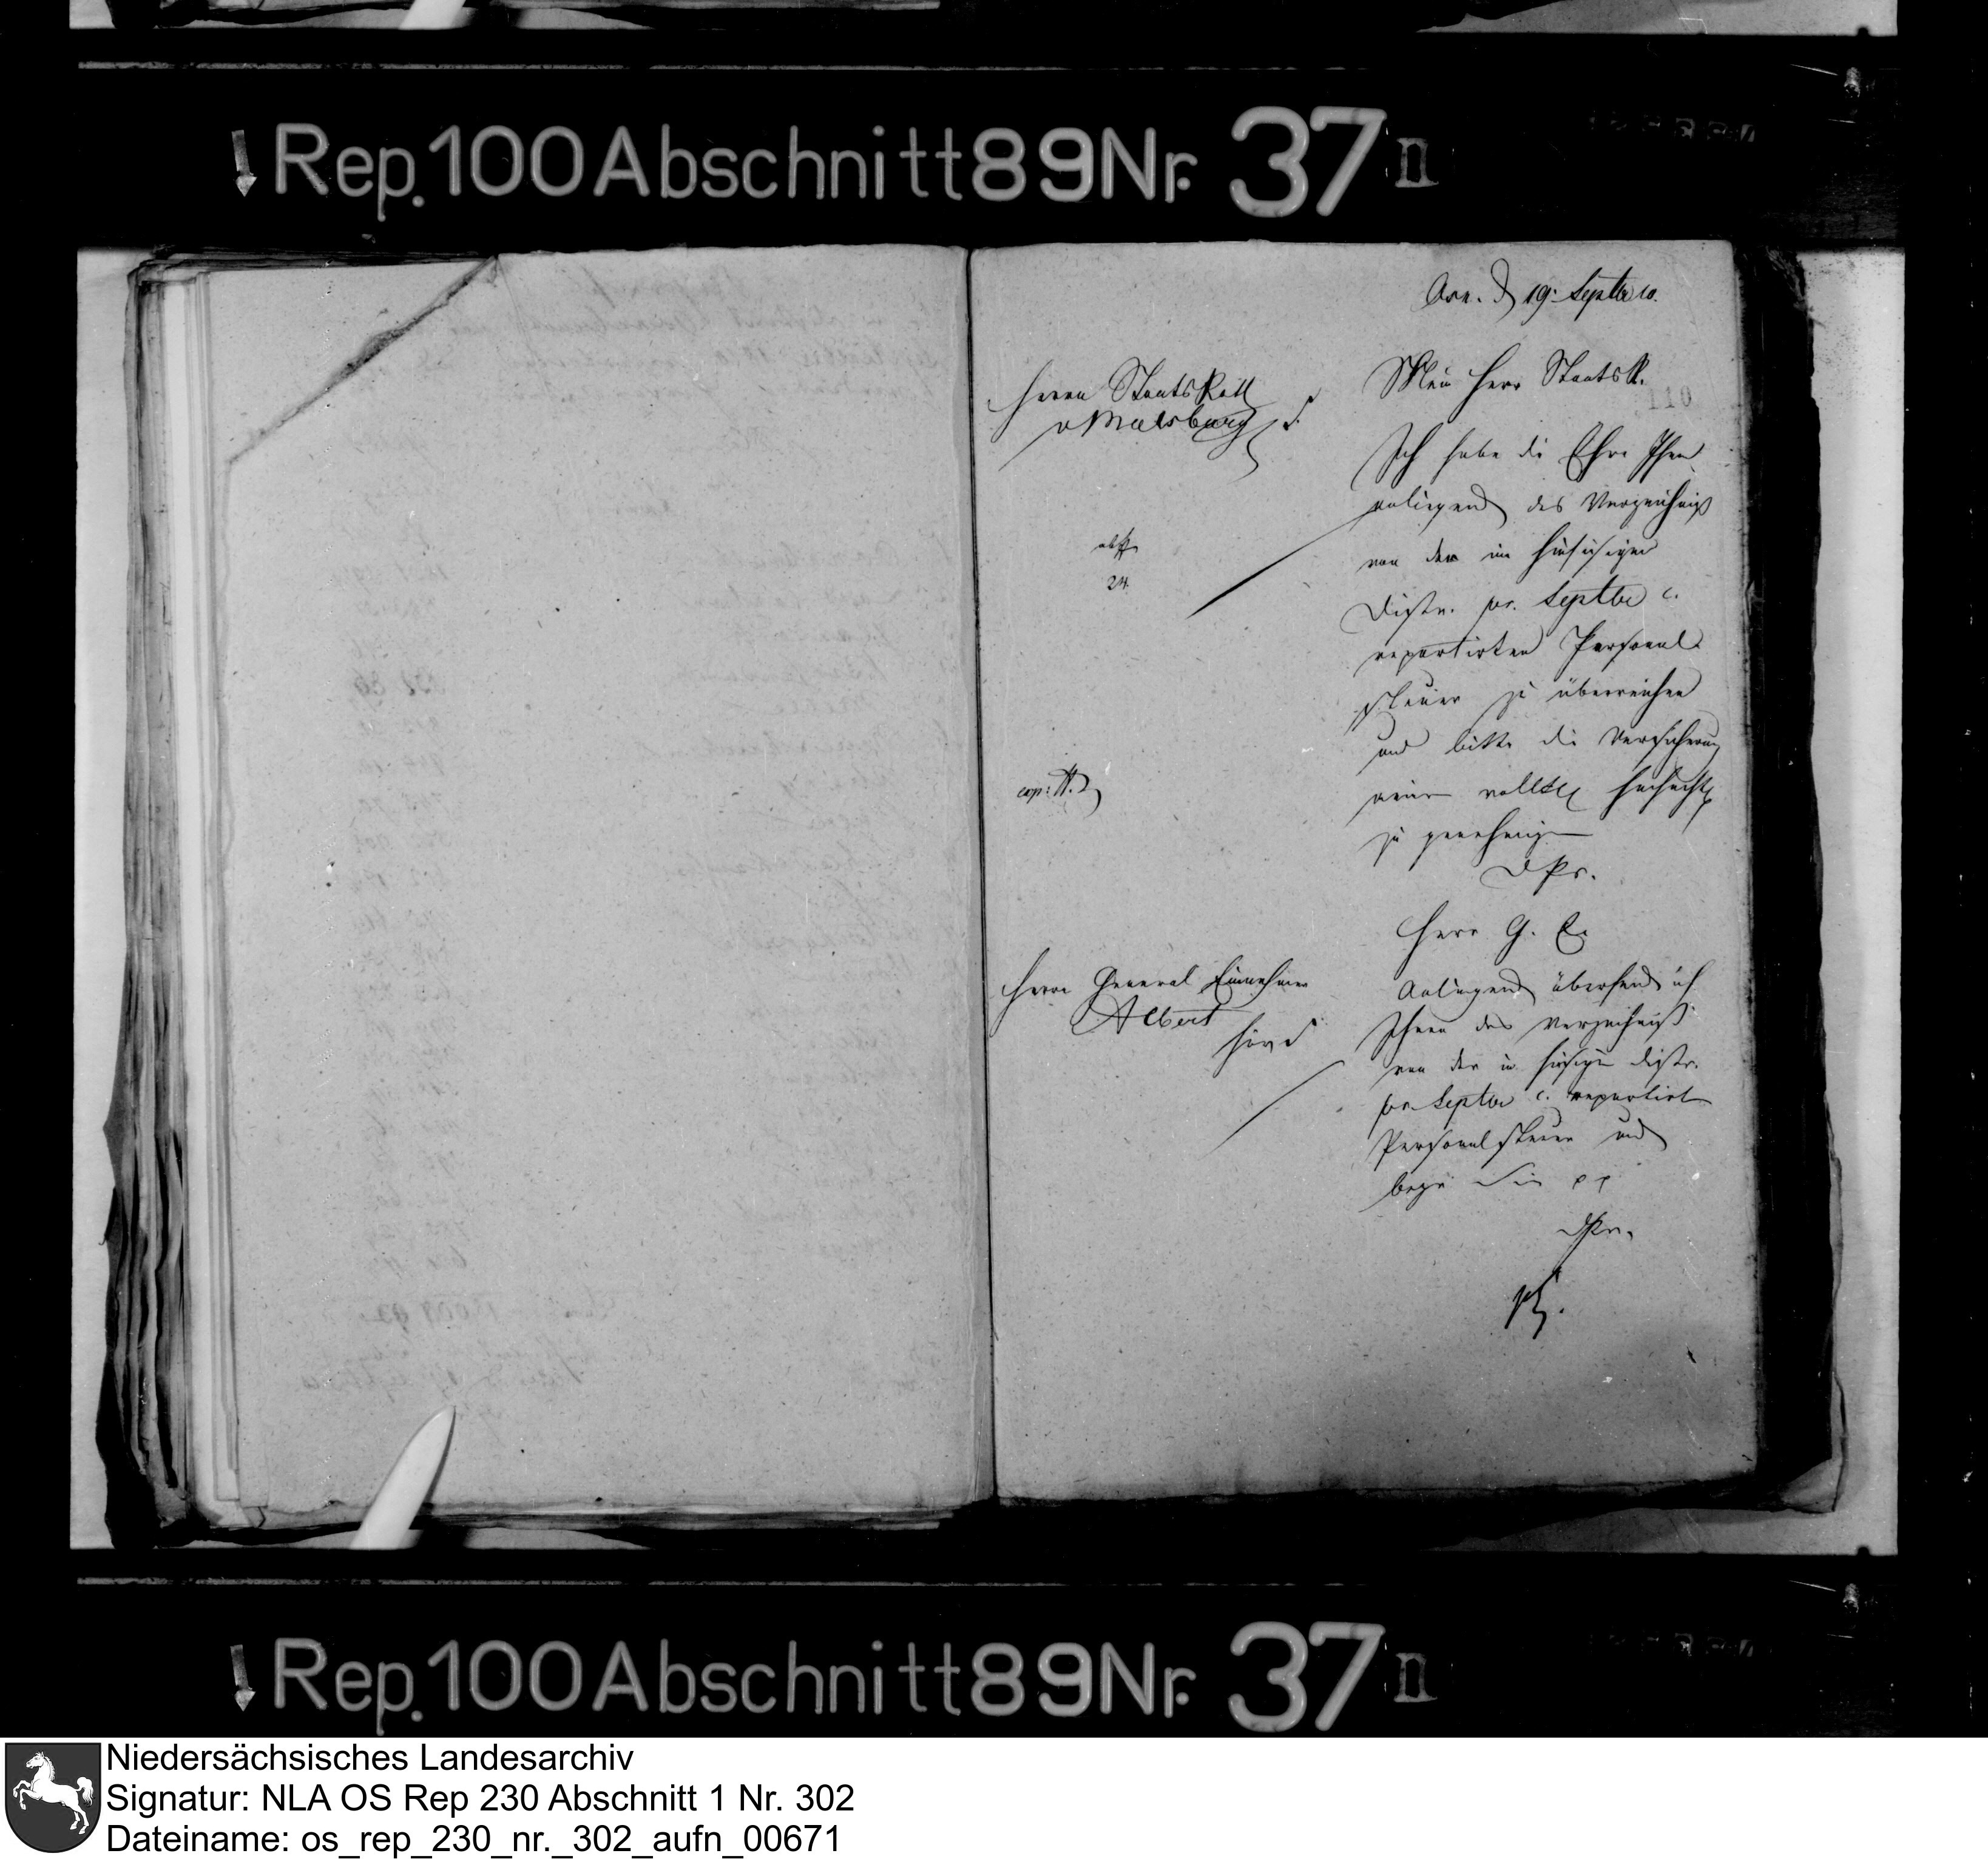 Rep. 100 Abschnitt 89 Nr. 37 II
Osn. d 19. Septbr 10.
110
Herrn StaatsRath
v Malsburg
abff
24.
exp: H.
Mein Herr StaatsR.
Ich habe die Ehre Ihnen
anliegend das Verzeichniß
von der im hiesigen
Distr. pr. Septbr c.
repartirten Personal-
steuer zu überreichen
und bitte die Versicherung
meiner vollkn Hochacht
zu genehmigen
DPr.
Herrn General Einnehmer
Albert
hies
Herr G. E.
Anliegend übersende ich
Ihnen das Verzeichniß
von der im hiesigen Distr.
pr Septbr c. repartirten
Personalsteuer und
Sie pp
DPr.
Rep. 100 Abschnitt 89 Nr. 37 II
Niedersächsisches Landesarchiv
Signatur: NLA OS Rep 230 Abschnitt 1 Nr. 302
Dateiname: os_rep_230_nr._302_aufn_00671